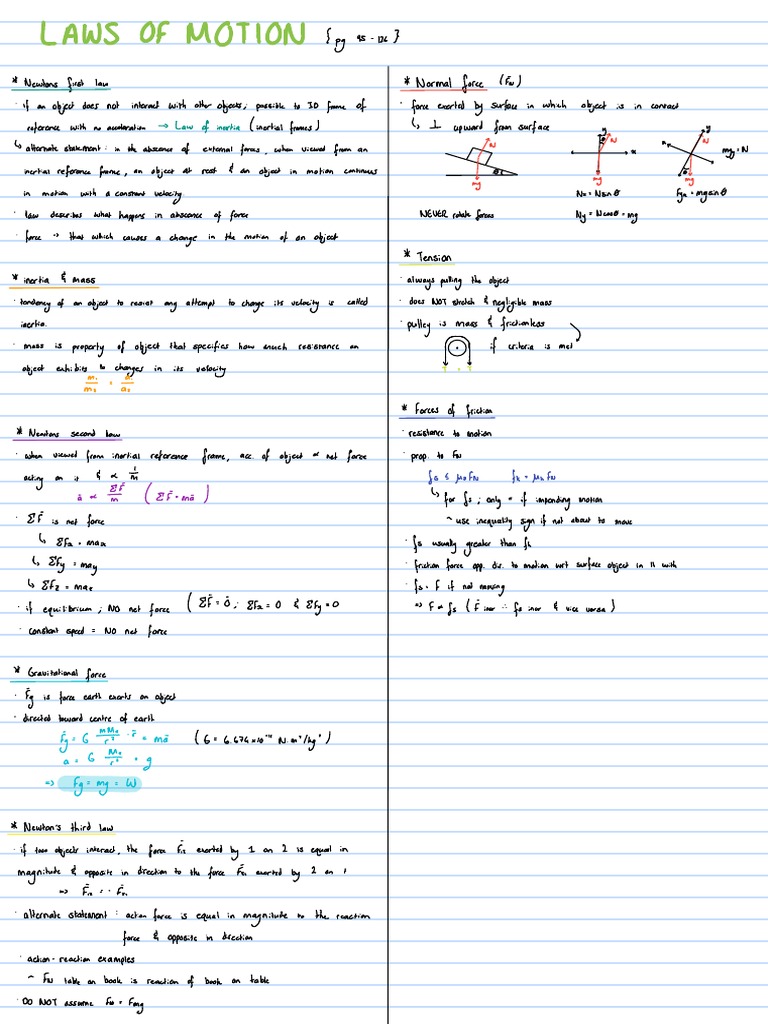 LAWS OF MOTION {pg 95-126}
* Newtons first law
· if an object does not interact with other objects; possible to ID frame of
reference with no acceleration → Law of inertia (inertial frames)
↳ alternate statement: in the abscence of external forces, when viewed from an
inertial reference frame, an object at rest & an object in motion continues
in motion with a constant velocity.
· law describes what happens in abscence of force
· force → that which causes a change in the motion of an object
* inertia & mass
· tendancy of an object to resist any attempt to change its velocity is called
inertia.
· mass is property of object that specifies how much resistance an
object exhibits to changes in its velocity
* Newtons second law
· when viewed from inertial reference frame, acc. of object ∝ net force
acting on it & ∝ 1/m
ā ∝ ΣF̄/m (ΣF̄ = mā)
· ΣF̄ is net force
↳ ΣFx = max
↳ ΣFy = may
↳ ΣFz = maz
· if equilibrium; NO net force (ΣF̄ = 0̄; ΣFx = 0 & ΣFy = 0
· constant speed = NO net force
* Gravitational force
· F̄g is force earth exerts on object
· directed toward centre of earth
F̄g = G mMe/r² · r̄ = mā (G = 6.674×10⁻¹¹ N·m²/kg²)
a = G Me/r² = g
⇒ Fg = mg = W
* Newton's third law
· if two objects interact, the force F̄12 exerted by 1 on 2 is equal in
magnitude & opposite in direction to the force F̄21 exerted by 2 on 1
⇒ F̄12 = -F̄21
· alternate statement: action force is equal in magnitude to the reaction
force & opposite in direction
· action-reaction examples
~ FN table on book is reaction of book on table
· DO NOT assume FN = Fmg
* Normal force (FN)
· force exerted by surface in which object is in contact
↳ ⊥ upward from surface
N
mg
θ
y
N
x
mg
θ
y
N
x
mg
θ
mgy = N
Nx = N sinθ
Ny = N cosθ = mg
Fgx = mg sinθ
NEVER rotate forces
* Tension
· always pulling the object
· does NOT stretch & negligible mass
· pulley is mass & frictionless
if criteria is met
T = T
* Forces of friction
· resistance to motion
· prop. to FN
fs ≤ μsFN fk = μkFN
↳ for fs; only = if impending motion
~ use inequality sign if not about to move
· fs usually greater than fk
· friction force opp. dir. to motion wrt surface object in // with
· fs = F if not moving
⇒ F ∝ fs (F̄ incr ∴ fs incr & vice versa)